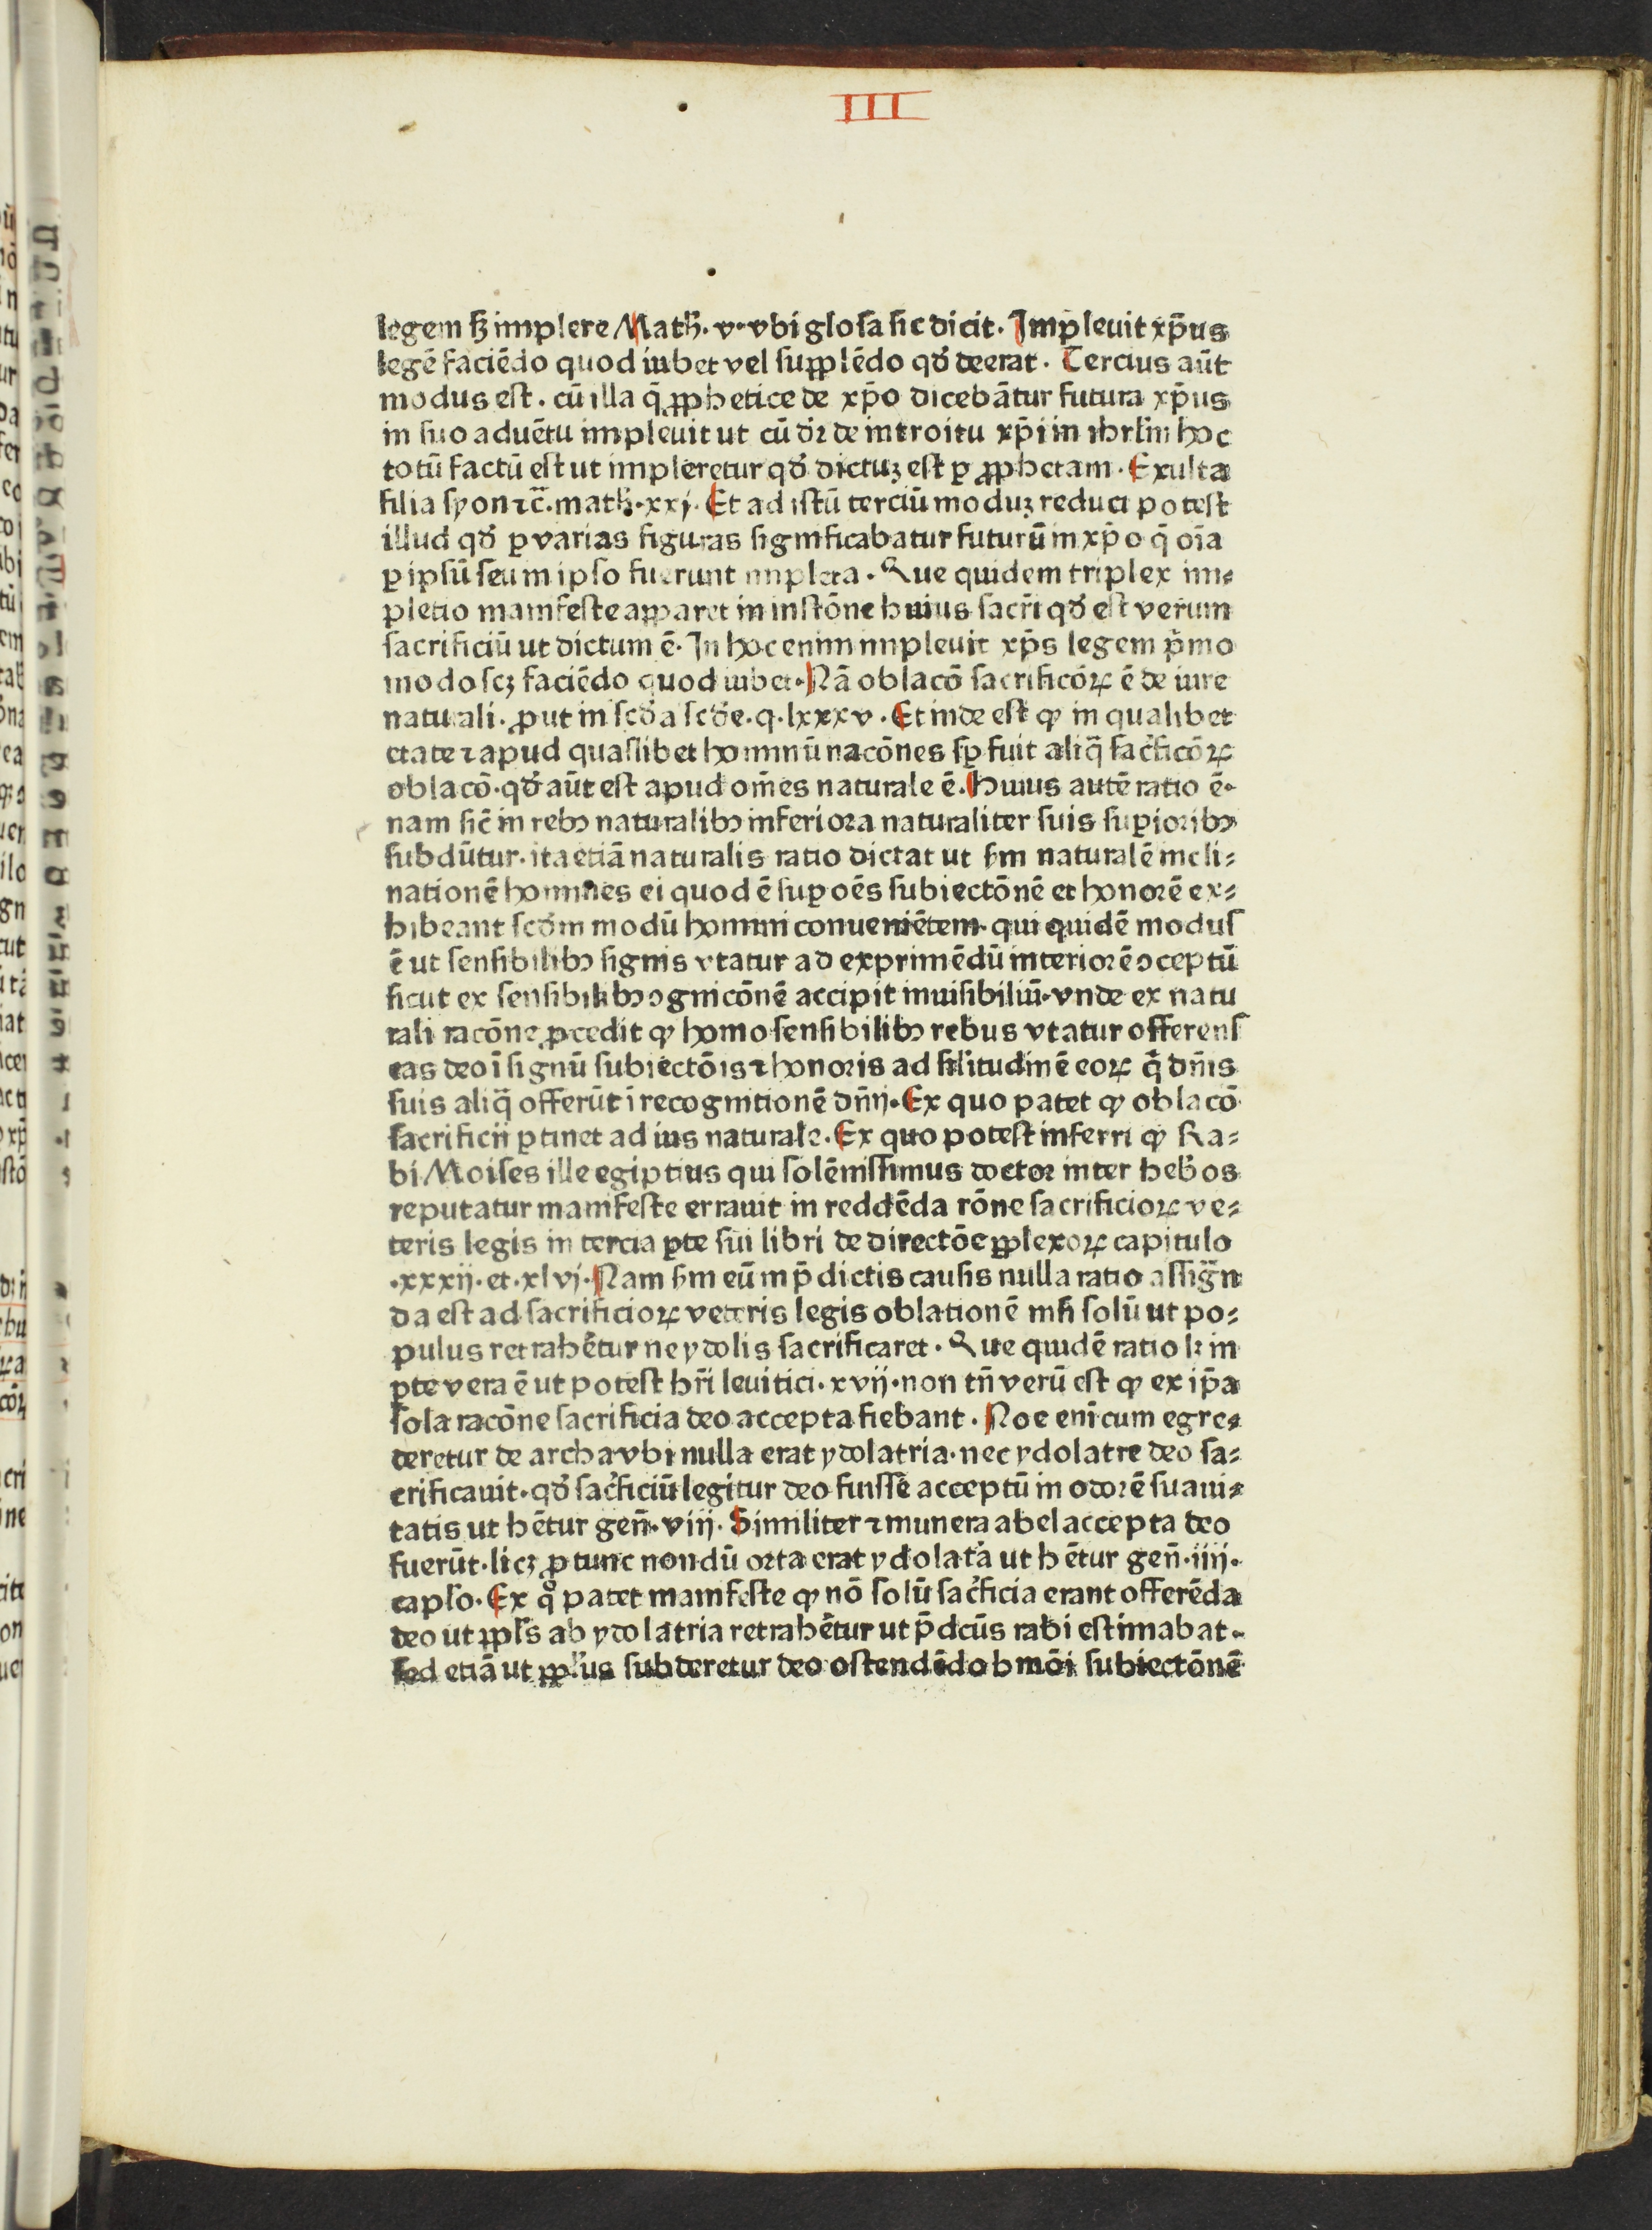 III
legem sꝫ implere Math̄·v·vbi glosa sic dicit· Impleuit xp̄us
legē faciēdo quod iubet vel suꝓplēdo qd̓ deerat· Tercius aūt
modus est· cū illa q̄ ꝓphetice de xp̄o dicebātur futura xp̄us
in suo aduētu impleuit ut cū dr̄ de introitu xp̄i in ihrlm̄ hoc
totū factū est ut impleretur qd̓ dictuꝫ est ꝑ ꝓphetam· Exulta
filia syon ⁊c̄·math̄·xxj· Et ad istū terciū moduꝫ reduci potest
illud qd̓ ꝑ varias figuras significabatur futurū in xp̄o q̄ oīa
ꝑ ipsū seu in ipso fuerunt impleta· Que quidem triplex im⸗
pletio manifeste apparet in instōne huius sacri̅ qd̓ est verum
sacrificiū ut dictum ē· In hoc enim impleuit xp̄s legem p̄mo
modo scꝫ faciēdo quod iubet· Nā oblacō sacrificōꝝ ē de iure
naturali· ꝓut in scd̓a scd̓e·q·lxxxv· Et inde est ꝙ in qualibet
etate ⁊ apud quaslibet hominū nacōnes sꝑ fuit aliq̄ sac̓ficōꝝ
oblacō·qd̓ aūt est apud om̄es naturale ē· Huius autē ratio ē·
nam sic̄ in rebꝫ naturalibꝫ inferiora naturaliter suis suꝑioribꝫ
subdūtur·ita etiā naturalis ratio dictat ut sm̄ naturalē incli⸗
nationē homines ei quod ē suꝑ oēs subiectōnē et honorē ex⸗
hibeant scd̓m modū homini conueniētem·qui quidē modus
ē ut sensibilibꝫ signis vtatur ad exprimēdū interiorē ꝯceptū
sicut ex sensibilibꝫ ꝯgnicōnē accipit inuisibiliū·vnde ex natu
rali racōne ꝓcedit ꝙ homo sensibilibꝫ rebus vtatur offerens
eas deo ī signū subiectōis ⁊ honoris ad silitudinē eoꝝ q̄ dn̄is
suis aliq̄ offerūt ī recognitionē dn̄ij· Ex quo patet ꝙ oblacō
sacrificii ꝑtinet ad ius naturale· Ex quo potest inferri ꝙ Ra⸗
bi Moises ille egiptius qui solēnissimus doctor inter heb̓os
reputatur manifeste errauit in reddēda rōne sacrificioꝝ ve⸗
teris legis in tercia ꝑte sui libri de directōe ꝑplexoꝝ capitulo
·xxxij·et·xlvj· Nam sm̄ eū in p̄dictis causis nulla ratio assign̄
da est ad sacrificioꝝ veteris legis oblationē nisi solū ut po⸗
pulus retrahētur ne ydolis sacrificaret· Que quidē ratio lꝫ in
ꝑte vera ē ut potest hr̄i leuitici·xvij·non tn̄ verū est ꝙ ex ip̄a
sola racōne sacrificia deo accepta fiebant· Noe enī cum egre⸗
deretur de archa vbi nulla erat ydolatria·nec ydolatre deo sa⸗
crificauit·qd̓ sac̓ficiū legitur deo fuisse acceptū in odorē suaui⸗
tatis ut hētur gen̄·viij· Similiter ⁊ munera abel accepta deo
fuerūt·licꝫ ꝓ tunc nondū orta erat ydolat̓a ut hētur gen̄·iiij·
caplo· Ex qͦ patet manifeste ꝙ nō solū sac̓ficia erant offerēda
deo ut ppl̓s ab ydolatria retrahētur ut p̄dcūs rabi estimabat·
sed etiā ut ppl̓us subderetur deo ostendēdo bmōi subiectōnē